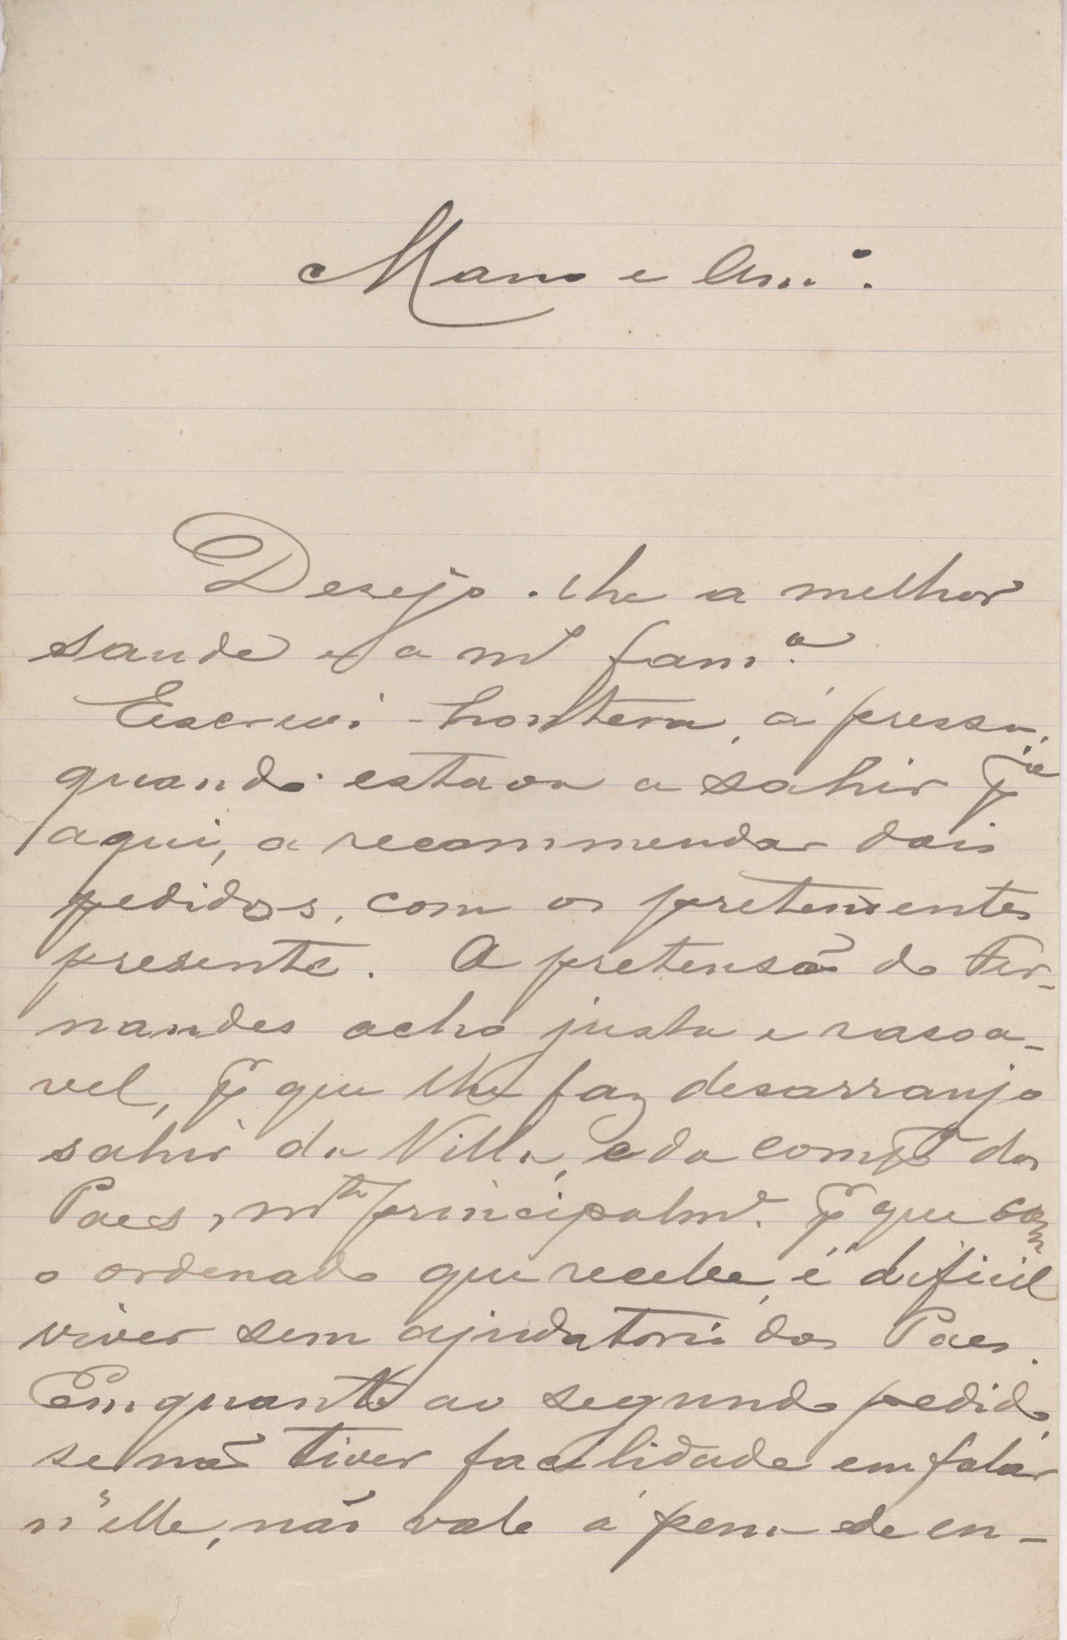 Mano e Am.º
Desejo-lhe a melhor
saude e a m.ª fam.ª
Escrevi hontem, á pressa,
quando estava a sahir pª
aqui, a recommendar dois
pedidos, com os pretendentes
presente. A pretensão do Fer-
nandes acho justa e rasoa-
vel, p que lhe faz desarranjo
sahir da Villa, e da compª dos
Paes, mtº principalmᵉ. p que com
o ordenado que recebe, é dificil
viver sem ajudatorio dos Paes.
Emquanto ao segundo pedido,
se não tiver facilidade em falar
n'elle, não vale a pena de en-